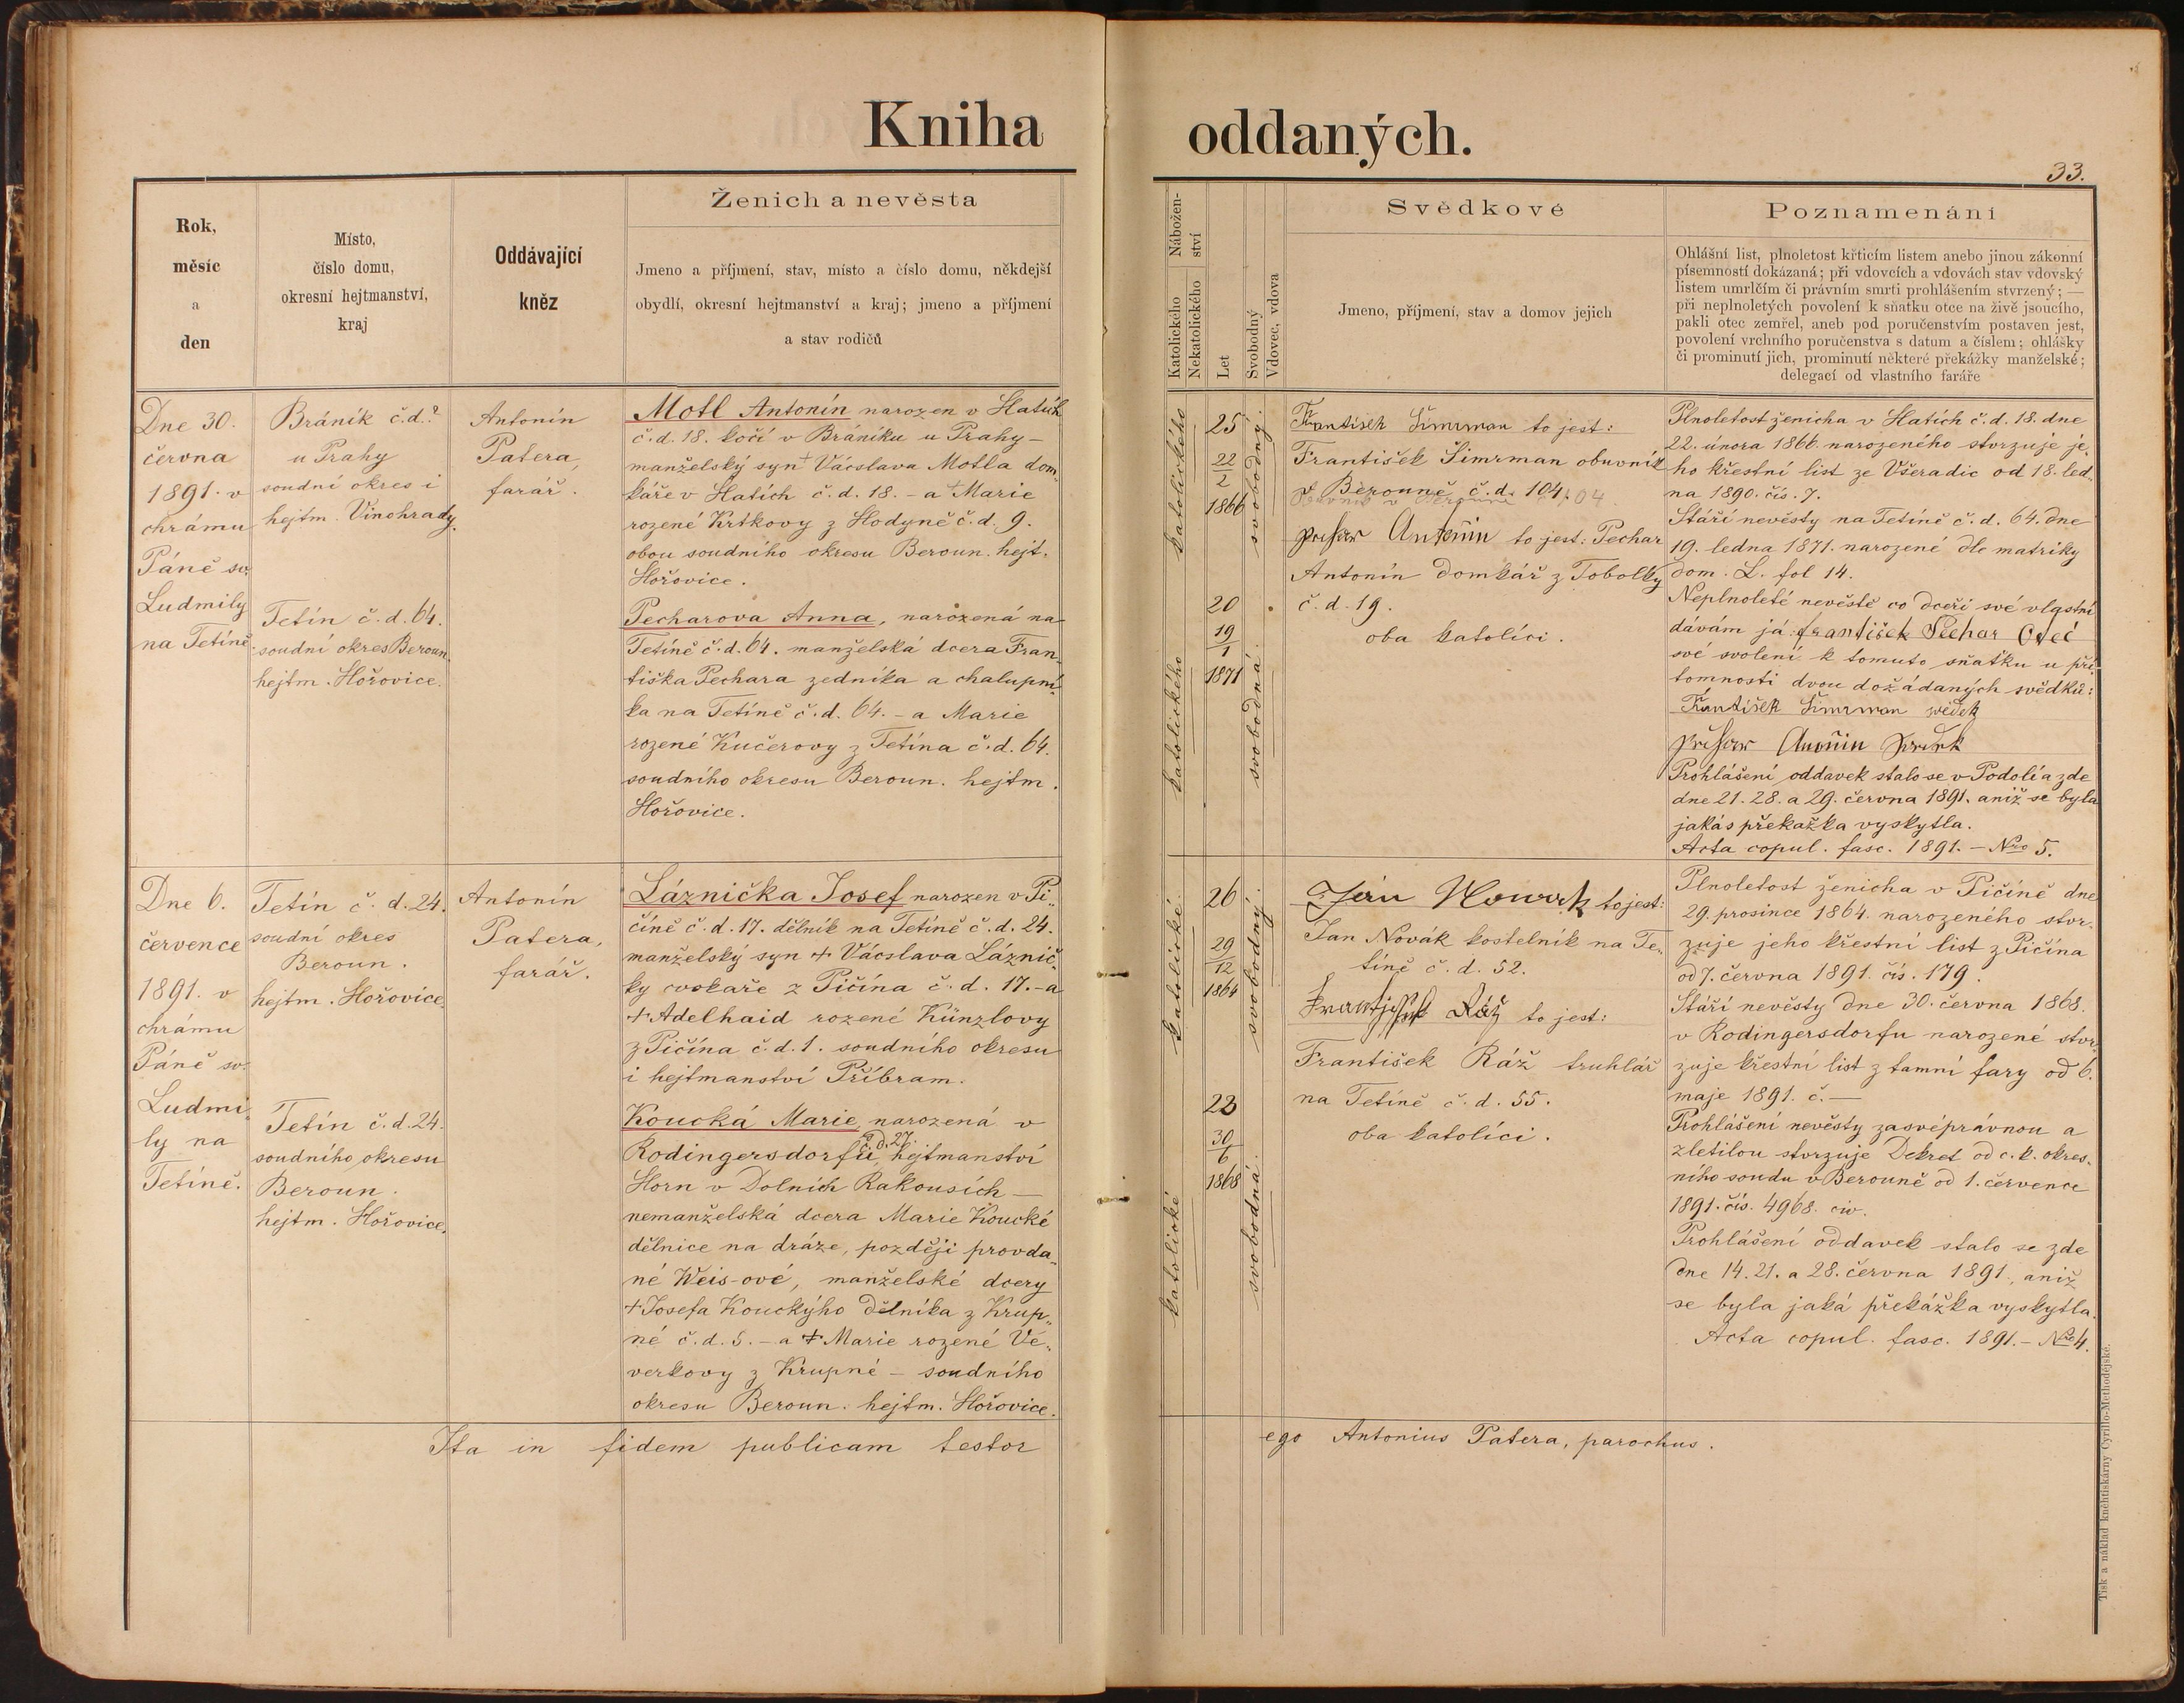 Kniha oddaných.
33.
Rok,
měsíc
a
den
Místo,
číslo domu,
okresní hejtmanství,
kraj
Oddávající
kněz
Ženich a nevěsta
Jmeno a příjmení, stav, místo a číslo domu, někdejší
obydlí, okresní hejtmanství a kraj; jmeno a příjmení
a stav rodičů
Nábožen-
ství
Katolického
Nekatolického
Let
Svobodný
Vdovec, vdova
Svědkové
Jmeno, příjmení, stav a domov jejich
Poznamenání
Ohlášní list, plnoletost křticím listem anebo jinou zákonní
písemností dokázaná; při vdovcích a vdovách stav vdovský
listem umrlčím či právním smrti prohlášením stvrzený; —
při neplnoletých povolení k sňatku otce na živě jsoucího,
pakli otec zemřel, aneb pod poručenstvím postaven jest,
povolení vrchního poručenstva s datum a číslem; ohlášky
či prominutí jich, prominutí některé překážky manželské;
delegací od vlastního faráře
Dne 30.
června
1891. v
chrámu
Páně sv.
Ludmily
na Tetíně
Bráník č.d.?
u Prahy
soudní okres i
hejtm. Vinohrady.
Tetín č.d. 64.
soudní okres Beroun.
hejtm. Hořovice.
Antonín
Patera,
farář.
Motl Antonín narozen v Hatích
č.d. 18. kočí v Bráníku u Prahy –
manželský syn + Vácslava Motla dom-
káře v Hatích č. d. 18. – a + Marie
rozené Krtkovy z Hodyně č.d. 9.
obou soudního okresu Beroun. hejt.
Hořovice.
Pecharova Anna, narozená na
Tetíně č.d. 64. manželská dcera Fran-
tiška Pechara zedníka a chalupní-
ka na Tetíně č.d. 64. – a Marie
rozené Kučerovy z Tetína č.d. 64.
soudního okresu Beroun. hejtm.
Hořovice.
katolického
25
22
2
1866
svobodný.
katolického
20
19
1
1871
svobodná.
František Šimrman to jest:
František Šimrman obuvník
v Berouně č.d. 104.
Antonín to jest: Pechar
Antonín domkář z Tobolky
č.d. 19.
oba katolíci.
Plnoletost ženicha v Hatích č.d. 18. dne
22. února 1866. narozeného stvrzuje je-
ho křestní list ze Všeradic od 18. led-
na 1890. čís. 7.
Stáří nevěsty na Tetíně č.d. 64. dne
19. ledna 1871. narozené dle matriky
dom. L. fol 14.
Neplnoleté nevěstě co dceři své vlastní
dávám já: František Pechar Otec
své svolení k tomuto sňatku u pří-
tomnosti dvou dožádaných svědků:
František Šimrman svědek
Antonin
Prohlášení oddavek stalo se v Podolí a zde
dne 21. 28. a 29. června 1891. aniž se byla
jakás překažka vyskytla.
Acta copul. fasc. 1891. – Nro 5.
Dne 6.
července
1891. v
chrámu
Páně sv.
Ludmi-
ly na
Tetíně.
Tetín č. d. 24.
soudní okres
Beroun.
hejtm. Hořovice
Tetín č.d. 24.
soudního okresu
Beroun.
hejtm. Hořovice.
Antonín
Patera,
farář.
Láznička Josef narozen v Pi-
číně č.d. 17. dělník na Tetíně č.d. 24.
manželský syn + Vácslava Láznič-
ky cvokaře z Pičína č.d. 17. – a
+ Adelhaid rozené Künzlovy
z Pičína č.d. 1. soudního okresu
i hejtmanství Příbram.
Koucká Marie, narozená v
Rodingersdorfu č.d. 27. hejtmanství
Horn v Dolních Rakousích –
nemanželská dcera Marie Koucké
dělnice na dráze, později provda-
né Weis-ové, manželské dcery
+ Josefa Kouckýho dělníka z Krup-
né č.d. 5. – a + Marie rozené Ve-
verkovy z Krupné – soudního
okresu Beroun. hejtm. Hořovice.
katolické.
26
29
12
1864
svobodný.
katolické
23
30
6
1868
svobodná.
Jan Nowak to jest:
Jan Novák kostelník na Te-
tíně č.d. 52.
Ráž to jest:
František Ráž truhlář
na Tetíně č.d. 55.
oba katolíci.
Plnoletost ženicha v Pičíně dne
29. prosince 1864. narozeného stvr-
zuje jeho křestní list z Pičína
od 7. června 1891. čís. 179.
Stáří nevěsty dne 30. června 1868.
v Rodingersdorfu narozené stvr-
zuje křestní list z tamní fary od 6.
maje 1891. č. —
Prohlášení nevěsty za svéprávnou a
zletilou stvrzuje Dekret od c. k. okres-
ního soudu v Berouně od 1. července
1891. čís. 4968. civ.
Prohlášení oddavek stalo se zde
dne 14. 21. a 28. června 1891, aniž
se byla jaká překážka vyskytla.
Acta copul. fasc. 1891. – Nro 4.
Ita in fidem publicam testor ego Antonius Patera, parochus.
Tisk a náklad kněhtiskárny Cyrillo-Methodějské.